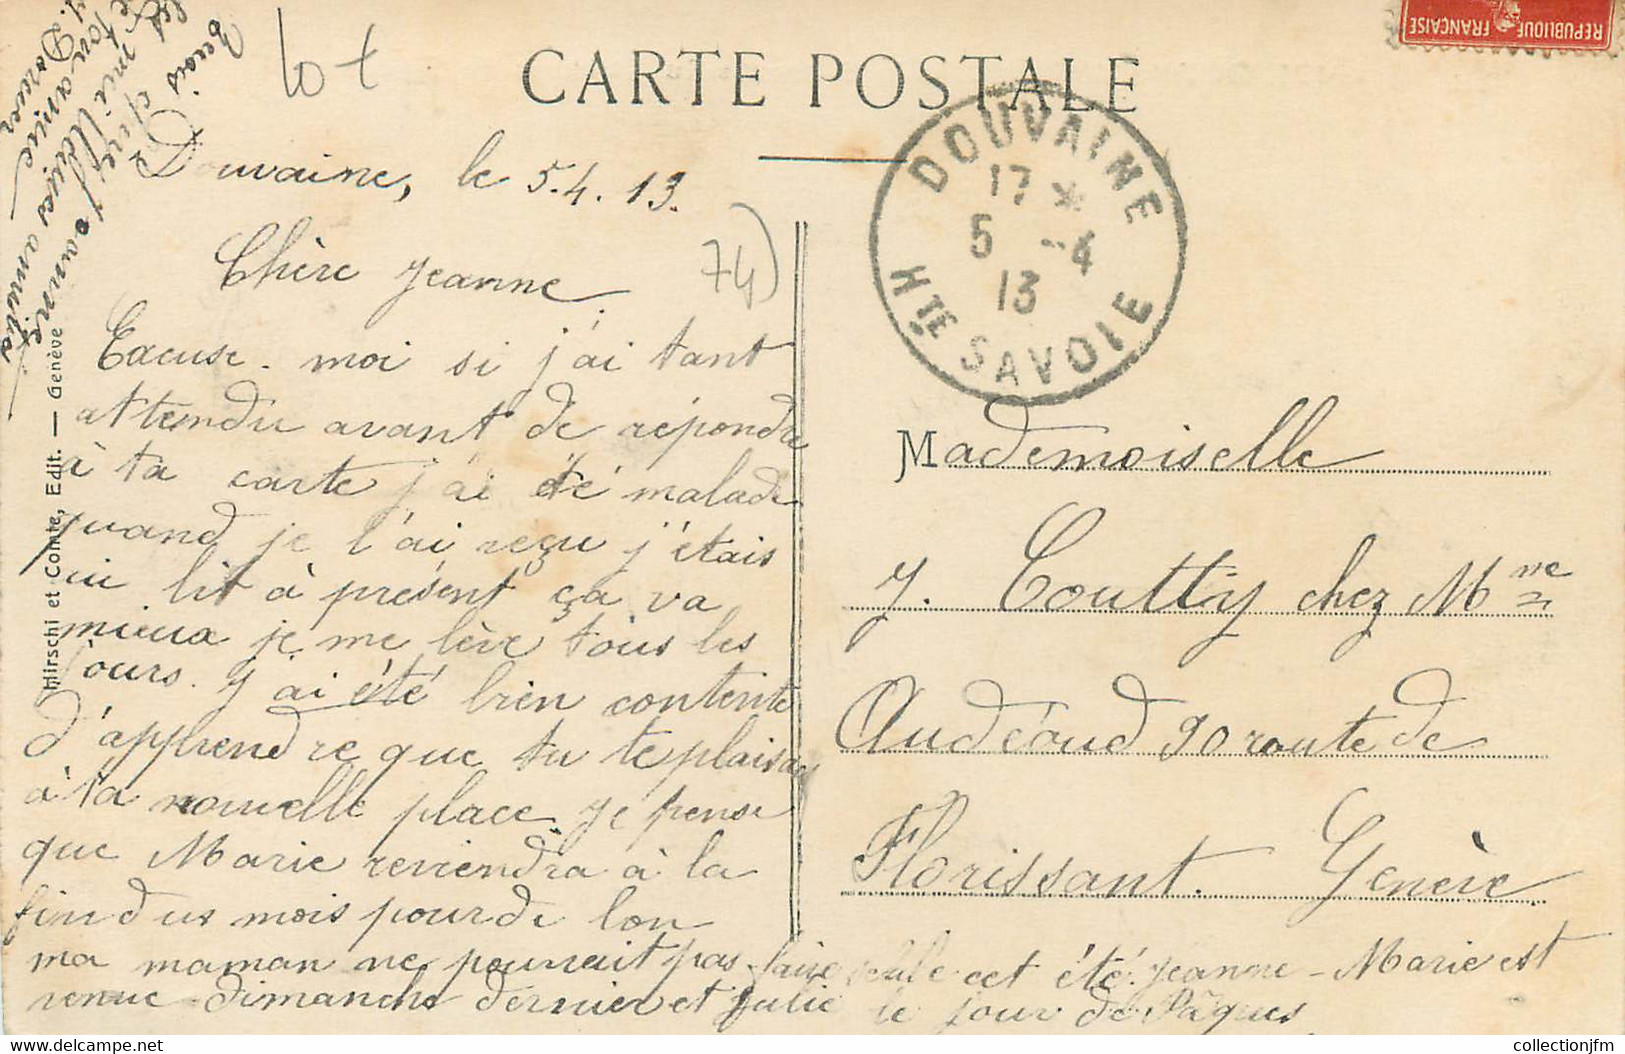 REPUBLIQUE FRANÇAISE
lot
CARTE POSTALE
DOUVAINE
17 *
5 -4
13
HTE SAVOIE
Douvaine, le 5.4.13.
74)
Chère Jeanne
Excuse-moi si j'ai tant
attendu avant de répondre
à ta carte j'ai été malade
quand je l'ai reçu j'étais
au lit à présent ça va
mieux je me lève tous les
jours. J'ai été bien contente
d'apprendre que tu te plaisais
à ta nouvelle place. Je pense
que Marie reviendra à la
fin du mois pour de bon
ma maman ne pourrait pas faire seule cet été. Jeanne-Marie est
venue dimanche dernier et Julie le jour de Pâques
Reçois chère Jeanne
les meilleures amitiés
de ton amie
Mademoiselle
J. Coutty chez Mme
Audéoud 90 route de
Florissant. Genève
Hirschi et Comte, Edit. — Genève
collectionjfm
delcampe.net